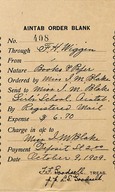 AINTAB ORDER BLANK
No. 408
Through F. H. Wiggin
From
Nature Books & Pper
Ordered by Miss I. M. Blake
Send to Miss I. M. Blake
Girls School, Aintab
By Registered Mail
Expense $ 6.70
Charge in a/c to
Miss I. M. Blake
Payment Deposit $ 2.00
Date October 9, 1909.
TREAS.